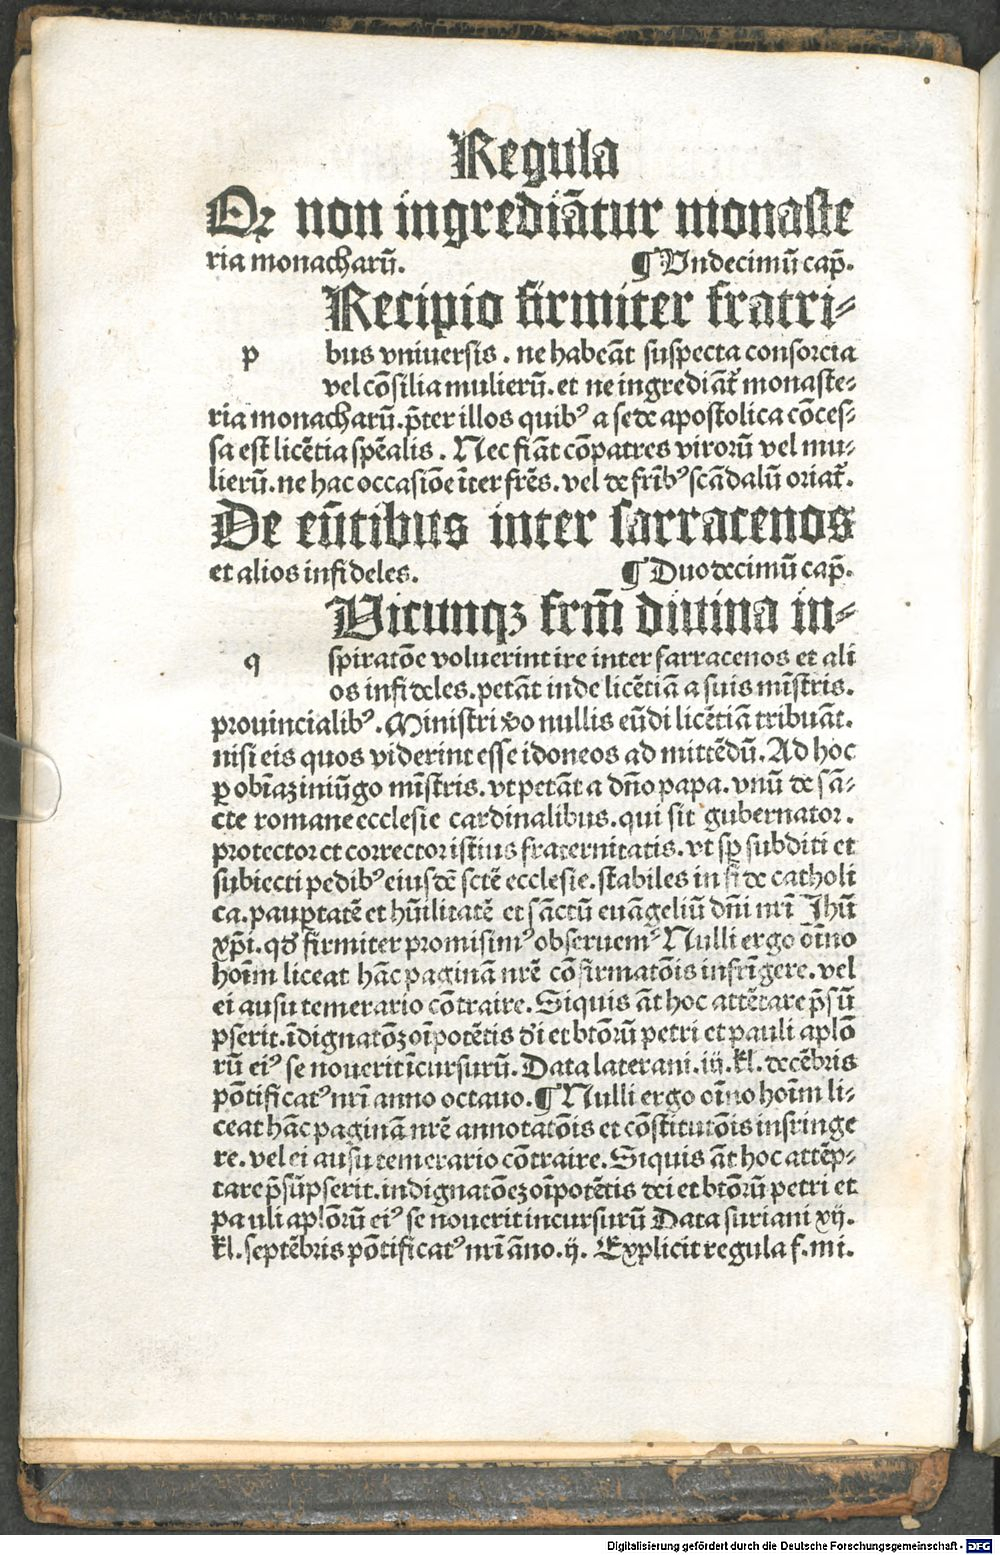 Regula
Qꝛ non ingrediãtur monaste
ria monacharũ. ¶ Vndecimũ cap̃.
Recipio firmiter fratri⸗
p bus vniuersis . ne habeãt suspecta consorcia
vel cõsilia mulierũ. et ne ingrediãt᷑ monaste⸗
ria monacharũ. p̃ter illos quibꝰ a sede apostolica cõces⸗
sa est licẽtia spẽalis . Nec fiãt cõpatres virorũ vel mu⸗
lierũ. ne hac occasiõe ĩter frẽs. vel de frĩbꝰ scãdalũ oriat᷑.
De eũtibus inter sarracenos
et alios infideles. ¶ Duodecimũ cap̃.
Vicunqꝫ frm̃ diuina in⸗
q spiratõe voluerint ire inter sarracenos et ali
os infideles. petãt inde licẽtiã a suis mĩstris.
prouincialibꝰ . Ministri ṽo nullis eũdi licẽtiã tribuãt.
nisi eis quos viderint esse idoneos ad mittẽdũ. Ad hoc
ꝑ obĩaꝫ iniũgo mĩstris. vt petãt a dño papa. vnũ de sã⸗
cte romane ecclesie cardinalibus. qui sit gubernator.
protector et corrector istius fraternitatis. vt sꝑ subditi et
subiecti pedibꝰ eiusdẽ sctẽ ecclesie. stabiles in fide catholi
ca. pauꝑtatẽ et hũilitatẽ et sãctũ euãgeliũ dñi nrĩ Jhũ
xp̃i. qđ firmiter promisimꝰ obseruemꝰ Nulli ergo oĩno
hoĩm liceat hãc paginã nrẽ cõfirmatõis infrĩgere. vel
ei ausu temerario cõtraire. Siquis ãt hoc attẽtare p̃sũ
pserit. ĩdignatõꝫ oĩpotẽtis đi et btõrũ petri et pauli aplõ
rũ eiꝰ se nouerit ĩcursurũ. Data laterani. iij. kl̃. decẽbris
põtificatꝰ nrĩ anno octauo. ¶ Nulli ergo oĩno hoĩm li⸗
ceat hãc paginã nrẽ annotatõis et cõstitutõis infringe
re. vel ei ausu temerario cõtraire. Siquis ãt hoc attẽp⸗
tare p̃sũpserit. indignatõeꝫ oĩpotẽtis dei et btõrũ petri et
pauli aplõrũ eiꝰ se nouerit incursurũ Data suriani xij.
kl̃. septẽbris põtificatꝰ nrĩ ãno. ij. Explicit regula f. mi.
Digitalisierung gefördert durch die Deutsche Forschungsgemeinschaft - DFG